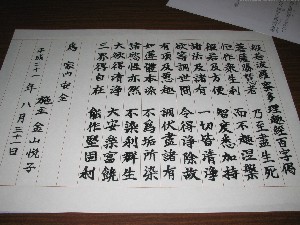 般若波羅蜜多理趣経百字偈
菩薩勝慧者 乃至盡生死
恒作衆生利 而不趣涅槃
般若及方便 智度悉加持
諸法及諸有 一切皆清浄
欲等調世間 令得浄除故
有頂及悪趣 調伏盡諸有
如蓮體本染 不為垢所染
諸慾性亦然 不染利群生
大欲得清浄 大安楽富饒
三界得自在 能作堅固利
為 家内安全
平成二十一年 八月三十一日
施主 金山悦子